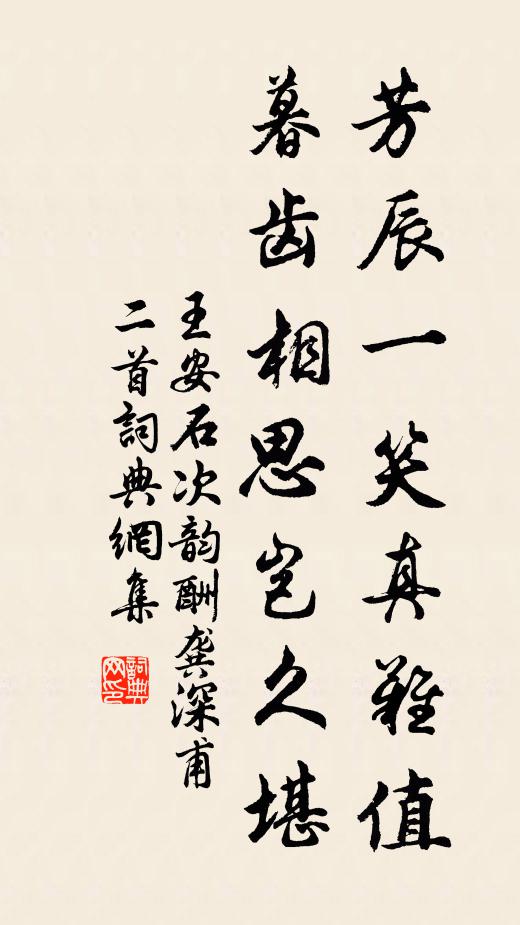 芳辰一笑真難值
暮齿相思岂久堪
王安石次韵酬龚深甫
二首詞典網集
詞典
网印